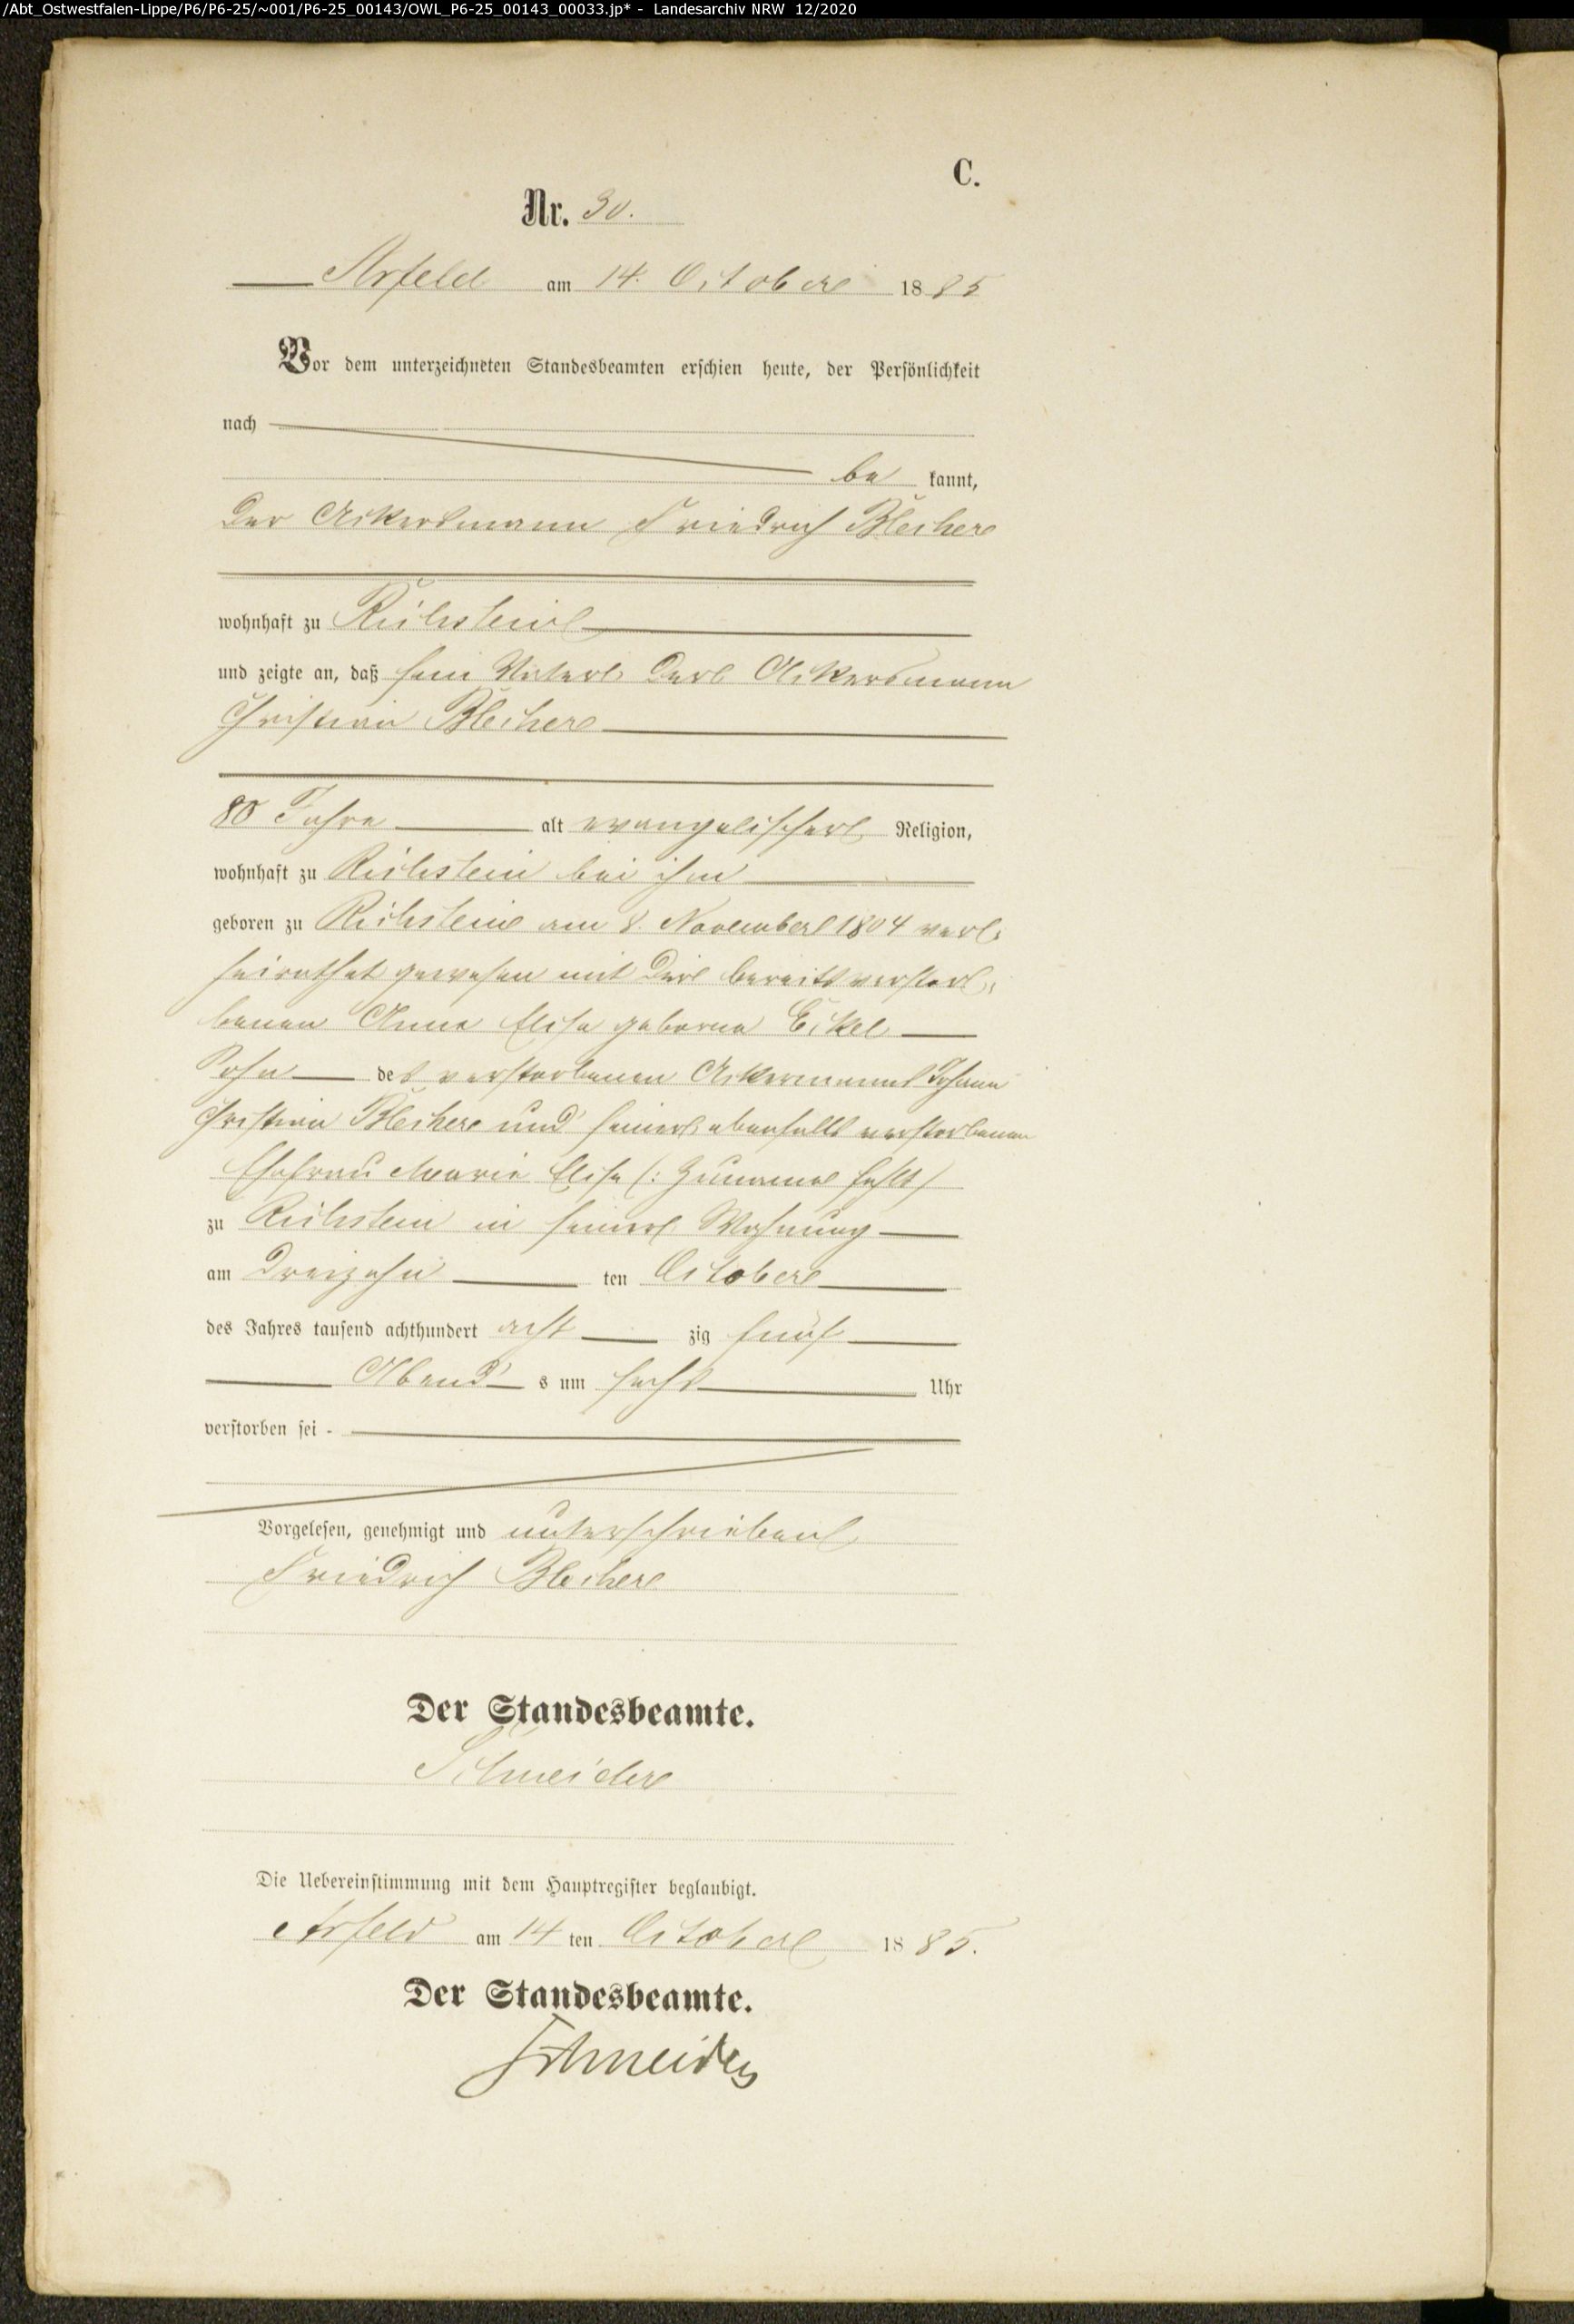 /Abt_Ostwestfalen-Lippe/P6/P6-25/~001/P6-25_00143/OWL_P6-25_00143_00033.jp* - Landesarchiv NRW 12/2020
C.
Nr. 30.
Arfeld am 14. October 1885
Vor dem unterzeichneten Standesbeamten erschien heute, der Persönlichkeit
nach
be kannt,
der Ackersmann Friedrich Blecher
wohnhaft zu Richstein
und zeigte an, daß sein Vater der Ackersmann
Christian Blecher
80 Jahre alt evangelischer Religion,
wohnhaft zu Richstein bei ihm
geboren zu Richstein am 8. November 1804 ver-
heirathet gewesen mit der bereits verstor-
benen Anna Elise geborne Eckel
Sohn des verstorbenen Ackermanns Johann
Christian Blecher und seiner ebenfalls verstorbenen
Ehefrau Maria Elise (: Zuname fehlt)
zu Richstein in seiner Wohnung
am dreizehn ten October
des Jahres tausend achthundert acht zig fünf
Abend s um sechs Uhr
verstorben sei -
Vorgelesen, genehmigt und unterschrieben
Friedrich Blecher
Der Standesbeamte.
Schneider
Die Uebereinstimmung mit dem Hauptregister beglaubigt.
Arfeld am 14 ten October 1885.
Der Standesbeamte.
Schneider